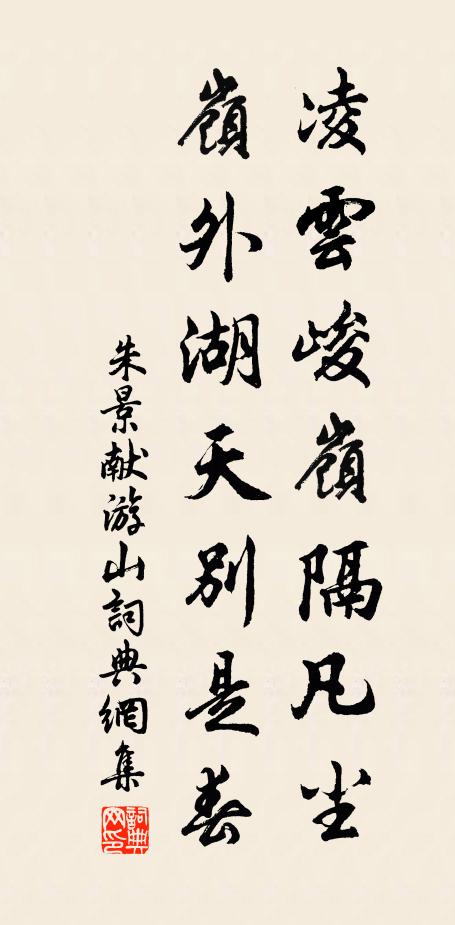 凌雲峻嶺隔凡尘
嶺外湖天別是春
朱景献游山詞典網集
詞典网印